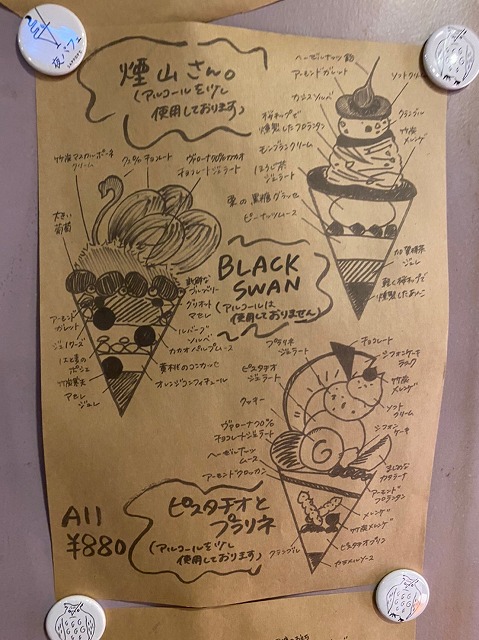 煙山さん。
(アルコールを少し
使用しております)
ヘーゼルナッツ飴
アーモンドガレット
カシスソルベ
桜チップで
燻製したフロランタン
モンブランクリーム
ほうじ茶
ジェラート
栗の黒糖グラッセ
ピーナッツムース
ソフトクリーム
クランブル
竹炭
メレンゲ
加賀棒茶
ジュレ
軽く桜チップで
燻製したあんこ
竹炭マスカルポーネ
クリーム
ヴァローナ70%カカオ
チョコレートジェラート
大きい
葡萄
BLACK
SWAN
(アルコールは
使用しておりません)
グリオット
マセレ
ルバーブ
ソルベ
カカオパルプムース
アーモンド
ガレット
オレンジコンフィチュール
竹炭寒天
ジュレ
プラリネ
ジェラート
ピスタチオ
ジェラート
クッキー
ヴァローナ70%
チョコレートジェラート
ヘーゼルナッツ
ムース
アーモンドクロッカン
クランブル
チョコレート
シフォンケーキ
ラスク
竹炭
メレンゲ
ソフト
クリーム
シフォン
ケーキ
アーモンド
フロランタン
メレンゲ
竹炭メレンゲ
ピスタチオプリン
ピスタチオと
プラリネ
(アルコールを少し
使用しております)
All
¥880